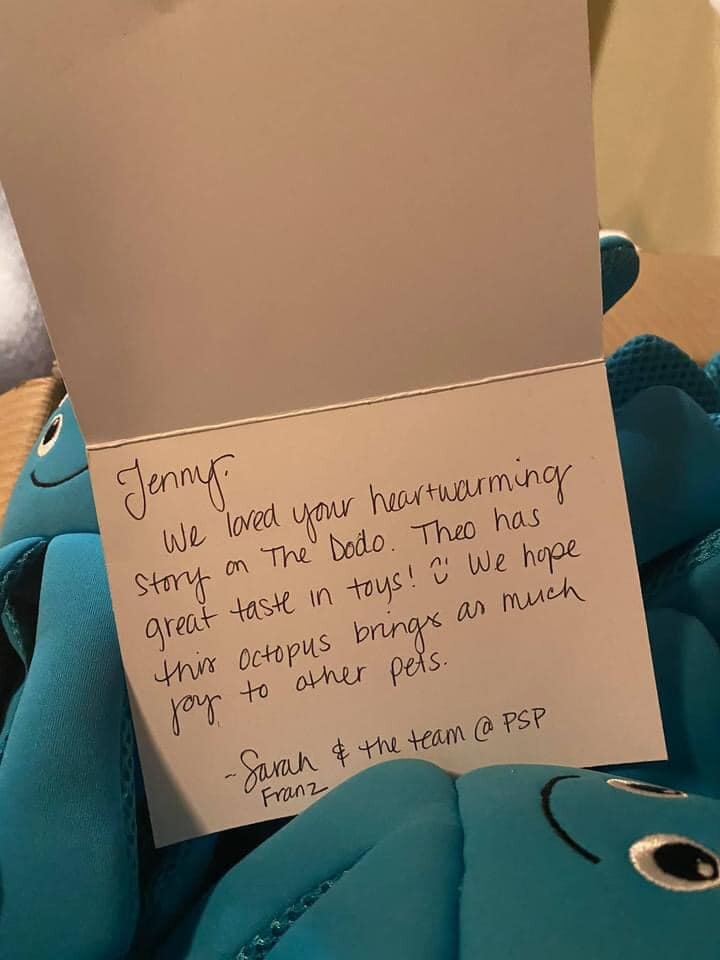 Jenny,
We loved your heartwarming
story on The Dodo. Theo has
great taste in toys! We hope
this octopus brings as much
joy to other pets.
- Sarah & the team @ PSP
Franz